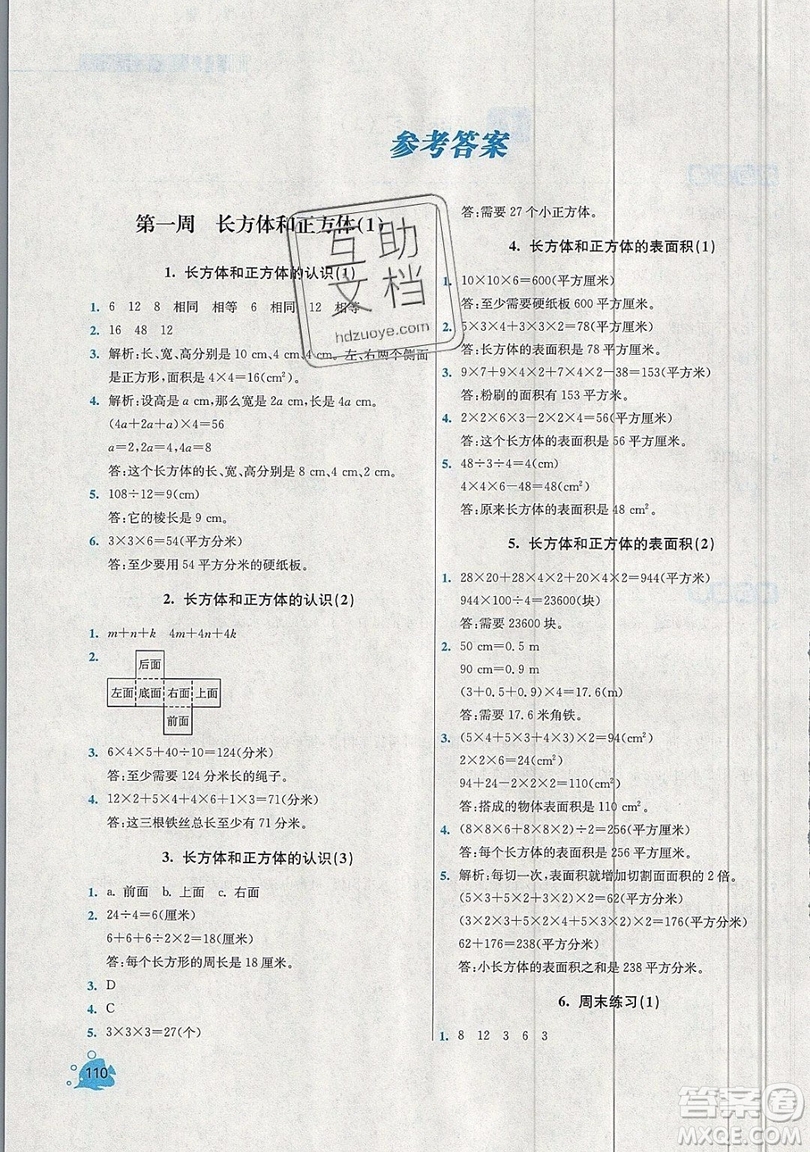 参考答案
第一周　长方体和正方体(1)
1. 长方体和正方体的认识(1)
1. 6　12　8　相同　相等　6　相同　12　相等
2. 16　48　12
3. 解析:长、宽、高分别是 10 cm、4 cm、4 cm。左、右两个侧面
是正方形,面积是 4×4=16(cm²)。
4. 解析:设高是 a cm,那么宽是 2a cm,长是 4a cm。
(4a+2a+a)×4=56
a=2,2a=4,4a=8
答:这个长方体的长、宽、高分别是 8 cm、4 cm、2 cm。
5. 108÷12=9(cm)
答:它的棱长是 9 cm。
6. 3×3×6=54(平方分米)
答:至少要用 54 平方分米的硬纸板。
2. 长方体和正方体的认识(2)
1. m+n+k　4m+4n+4k
2.
后面
左面 底面 右面 上面
前面
3. 6×4×5+40÷10=124(分米)
答:至少需要 124 分米长的绳子。
4. 12×2+5×4+4×6+1×3=71(分米)
答:这三根铁丝总长至少有 71 分米。
3. 长方体和正方体的认识(3)
1. a. 前面　b. 上面　c. 右面
2. 24÷4=6(厘米)
6+6+6÷2×2=18(厘米)
答:每个长方形的周长是 18 厘米。
3. D
4. C
5. 3×3×3=27(个)
答:需要 27 个小正方体。
4. 长方体和正方体的表面积(1)
1. 10×10×6=600(平方厘米)
答:至少需要硬纸板 600 平方厘米。
2. 5×3×4+3×3×2=78(平方厘米)
答:长方体的表面积是 78 平方厘米。
3. 9×7+9×4×2+7×4×2-38=153(平方米)
答:粉刷的面积有 153 平方米。
4. 2×2×6×3-2×2×4=56(平方厘米)
答:这个长方体的表面积是 56 平方厘米。
5. 48÷3÷4=4(cm)
4×4×6-48=48(cm²)
答:原来长方体的表面积是 48 cm²。
5. 长方体和正方体的表面积(2)
1. 28×20+28×4×2+20×4×2=944(平方米)
944×100÷4=23600(块)
答:需要 23600 块。
2. 50 cm=0.5 m
90 cm=0.9 m
(3+0.5+0.9)×4=17.6(m)
答:需要 17.6 米角铁。
3. (5×4+5×3+4×3)×2=94(cm²)
2×2×6=24(cm²)
94+24-2×2×2=110(cm²)
答:搭成的物体表面积是 110 cm²。
4. (8×8×6+8×8×2)÷2=256(平方厘米)
答:每个长方体的表面积是 256 平方厘米。
5. 解析:每切一次,表面积就增加切割面面积的 2 倍。
(5×3+5×2+3×2)×2=62(平方分米)
(3×2×2+5×3×4+5×2×3)×2=176(平方分米)
62+176=238(平方分米)
答:小长方体的表面积之和是 238 平方分米。
6. 周末练习(1)
1. 8　12　3　6　3
110
互助
文档
hdzuoye.com
答案卷
MXQE.COM